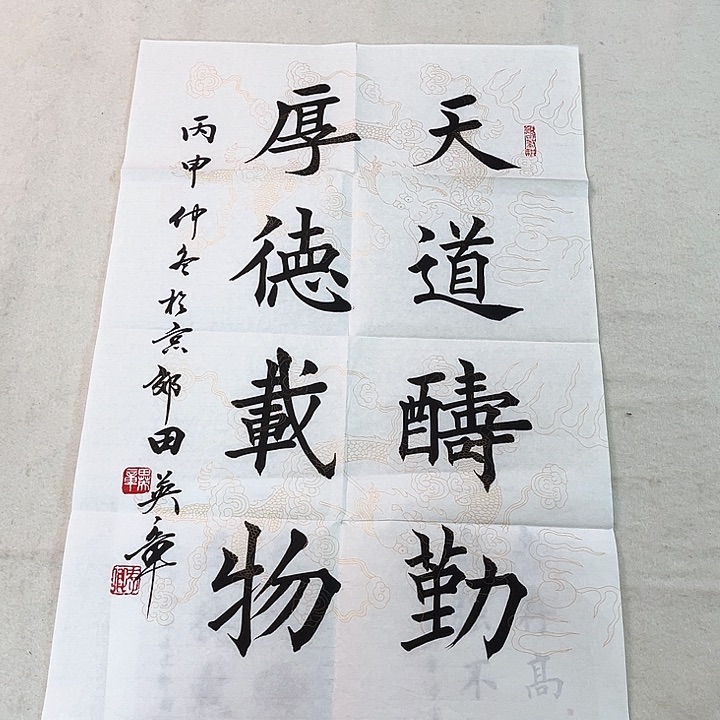 天道酬勤
厚德載物
丙申仲冬於京郊田英章
不
高